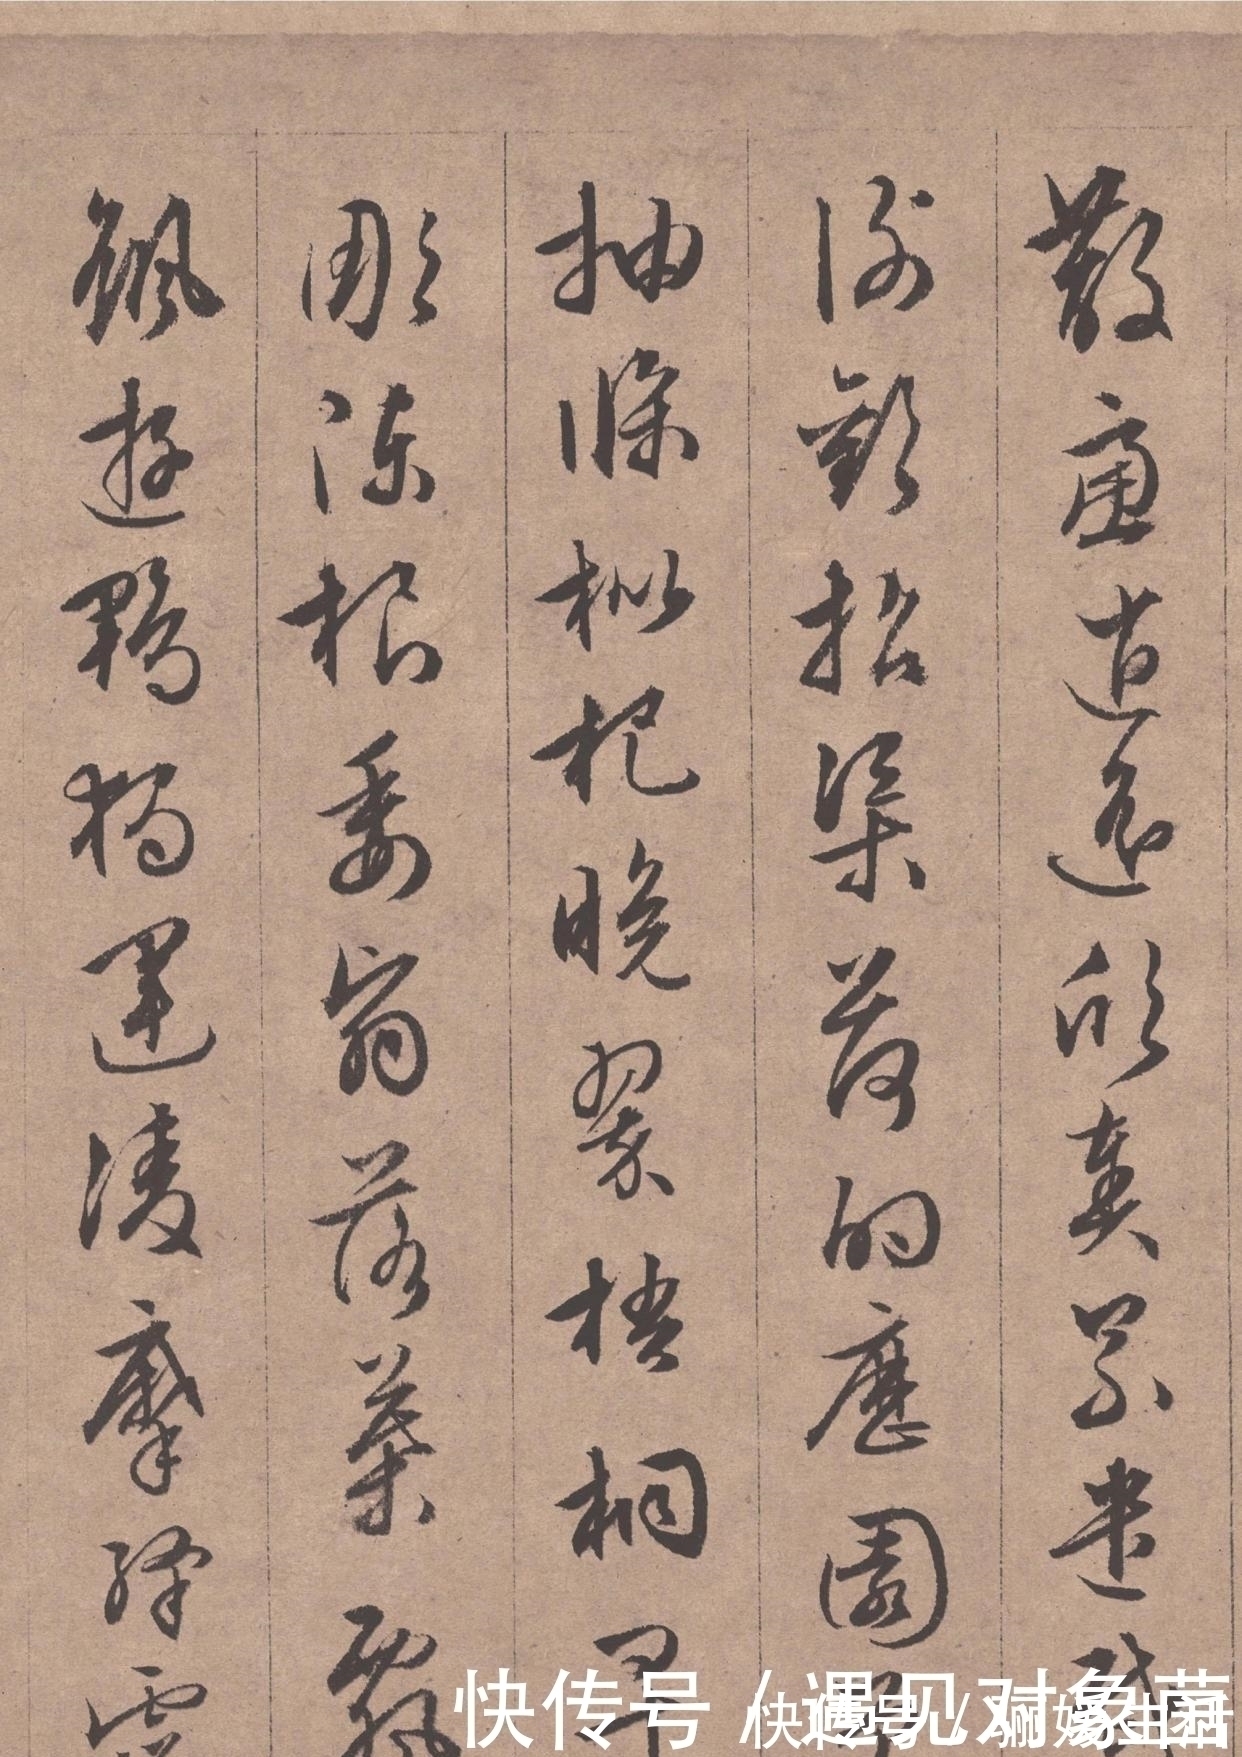 散慮逍遙欣奏累遣慼
謝歡招渠荷的歷園
抽條枇杷晚翠梧桐早
彫陳根委翳落葉飄
颻遊鵾獨運淩摩絳霄
快传号 / 遇见对象菌
快传号 / 生活